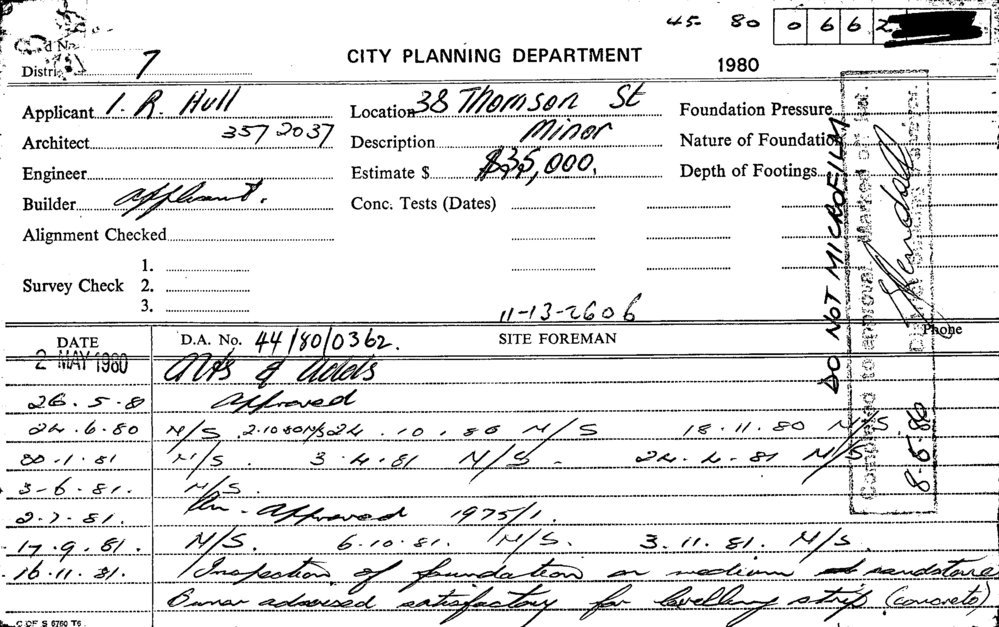 45- 80 0662
CITY PLANNING DEPARTMENT
1980
Distri 7
Applicant I. R. Hull
Location 38 Thomson St
Foundation Pressure
Architect 357 2037
Description Minor
Nature of Foundation
Engineer
Estimate $ $35,000.
Depth of Footings
Builder applicant.
Conc. Tests (Dates)
Alignment Checked
Survey Check
1.
2.
3.
11-13-2606
DO NOT MICROFILM
Completed to approval. Marked on
8-5-86
DATE D.A. No. 44/80/0362. SITE FOREMAN Phone
2 MAY 1980 Alts & Adds
26.5.8 Approved
24.6.80 N/S 2.10.80 N/S 24.10.80 N/S 18.11.80 N/S
30.1.81 N/S. 3.4.81 N/S. 24.4.81 N/S
3-6-81. N/S.
2.7.81. Approved 1975/1.
17.9.81. N/S. 6.10.81. N/S. 3.11.81. N/S
16.11.81. Inspection of foundation on medium sandstone
Owner advised satisfactory for levelling strip (concrete)
C OF S 6760 T6